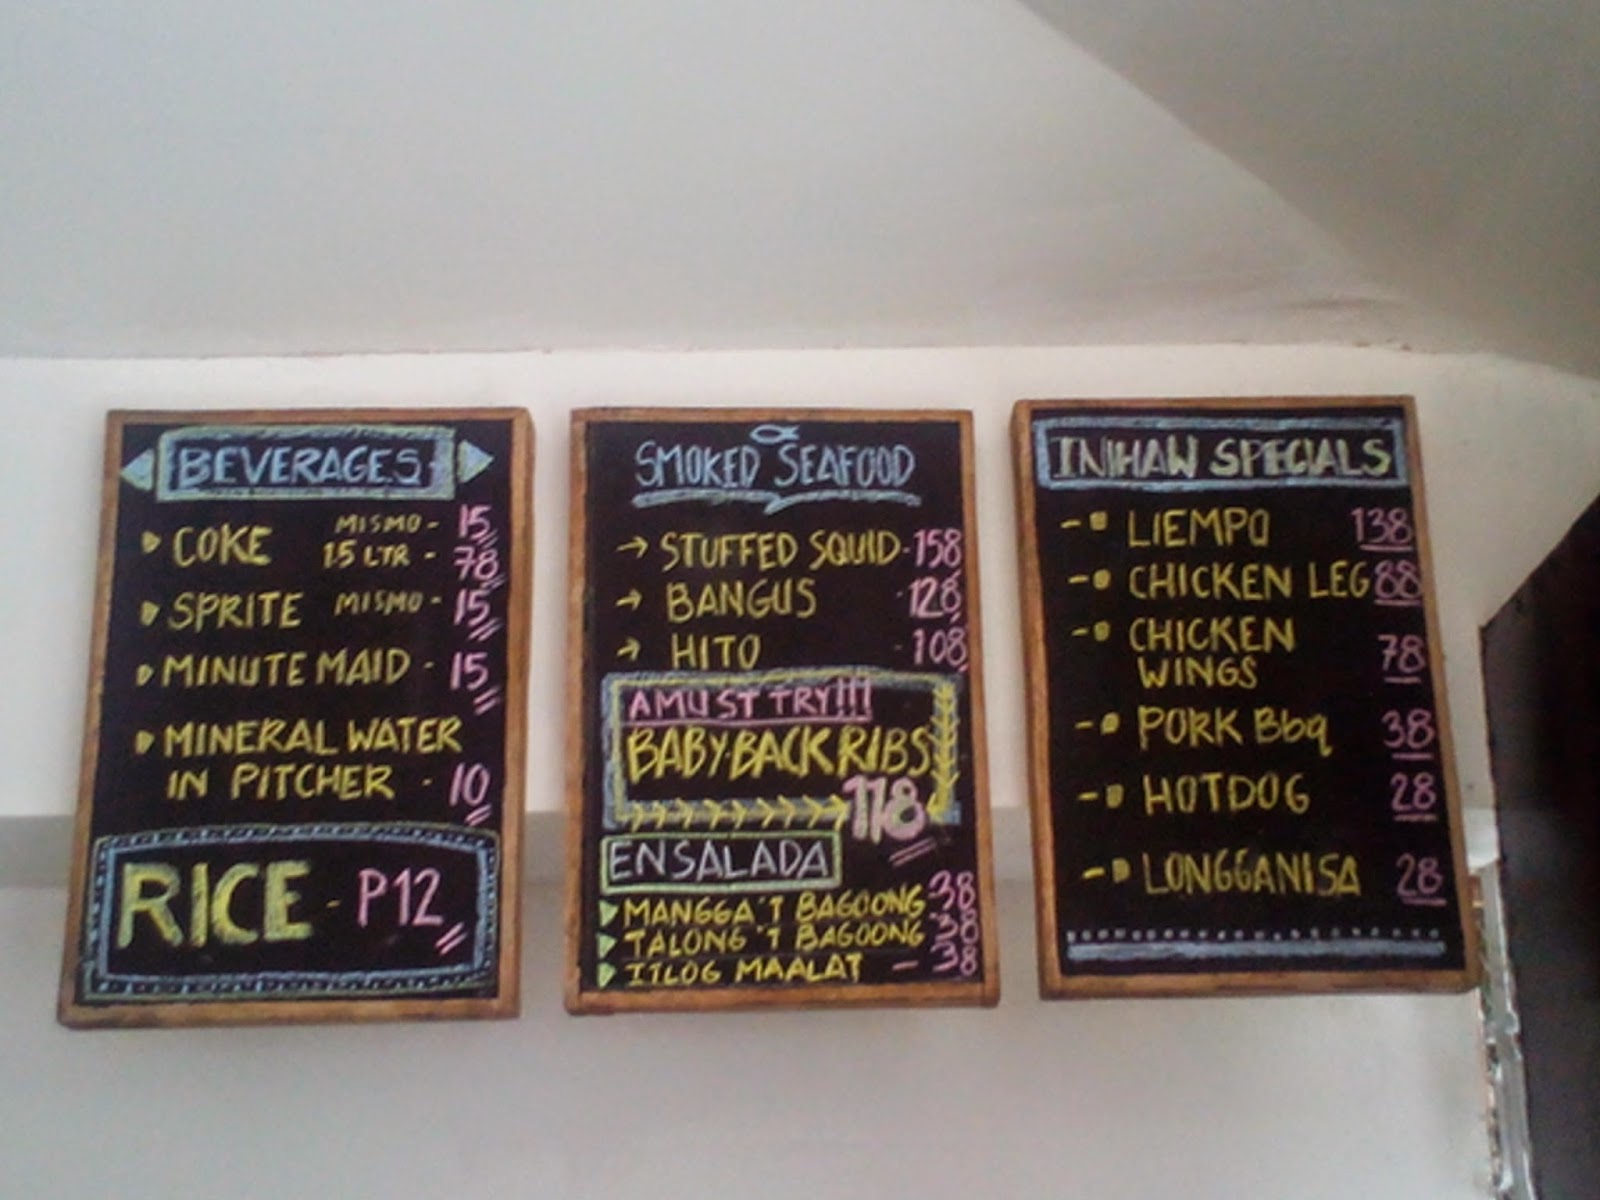 BEVERAGES
COKE MISMO - 15
1.5 LTR - 78
SPRITE MISMO - 15
MINUTE MAID - 15
MINERAL WATER
IN PITCHER - 10
RICE - P12
SMOKED SEAFOOD
STUFFED SQUID - 158
BANGUS - 128
HITO - 108
A MUST TRY!!!
BABY BACK RIBS
118
ENSALADA
MANGGA'T BAGOONG 38
TALONG'T BAGOONG 38
ITLOG MAALAT - 38
INIHAW SPECIALS
LIEMPO 138
CHICKEN LEG 88
CHICKEN
WINGS 78
PORK Bbq 38
HOTDOG 28
LONGGANISA 28